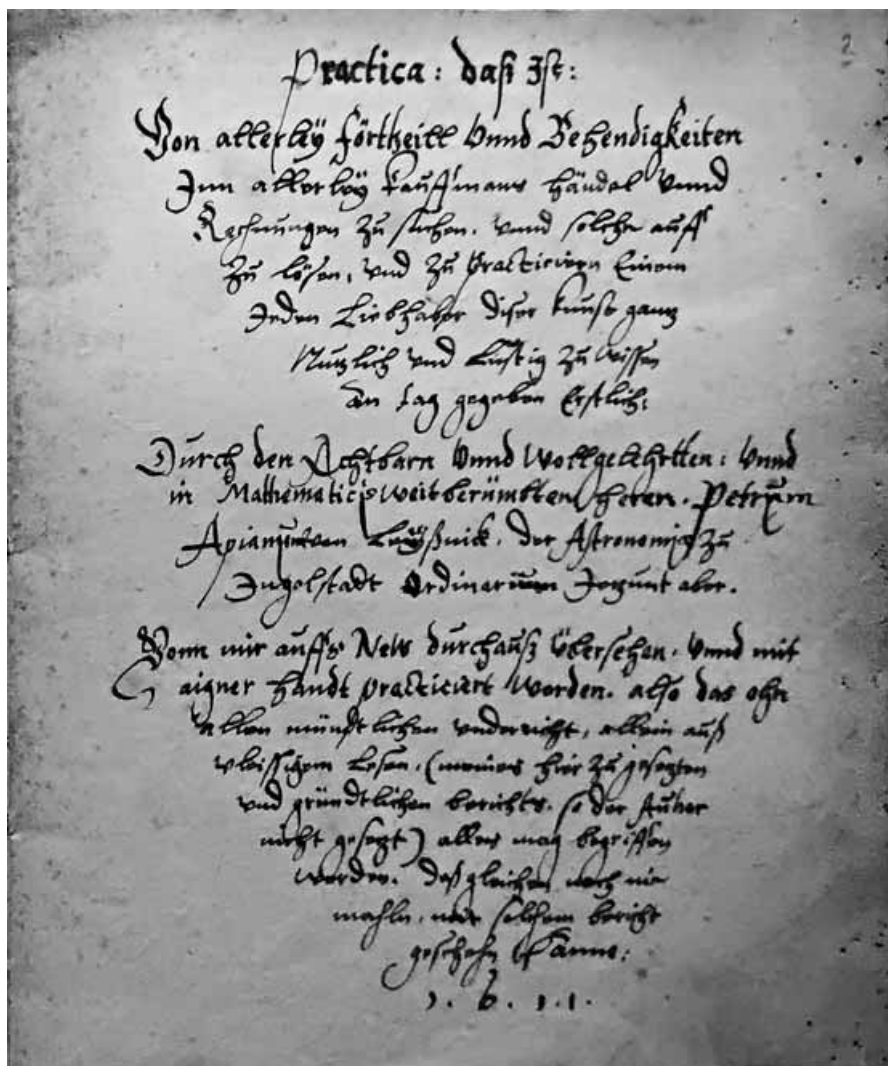 2
Practica: daß Ist:
Von allerleÿ förtheill Vnnd Behendigkeiten
Inn allerleÿ Kauffmans händel vnnd
Rechnungen zu suchen. vnnd solche auff
zu lösen, vnd zu practiciern Einem
Jeden Liebhaber diser kunst gantz
Nutzlich vnd Lustig zu wissen
an tag gegeben Erstlich:
Durch den Achtbarn Vnnd Wollgelehrtten: Vnnd
in Mathematicis Weitberümbten heren. Petrum
Apianum von Leÿßnick. der Astronomiÿ zu
Ingelstadt Ordinarium Jetzunt aber.
Vonn mir auffs New durchauß Übersehen. Vnnd mit
aigner handt practiciert worden. also das ohn
allen mündtlichen vnderricht, allein auß
vleissigem Lesen. (meines hier zu gesetzten
vnd gründtlichen berichts. so der Author
nicht gesetzt) alles mag begriffen
werden. Deßgleichen noch nie
mahln, mit solchem bericht
geschehn
1. 6. 1. 1.